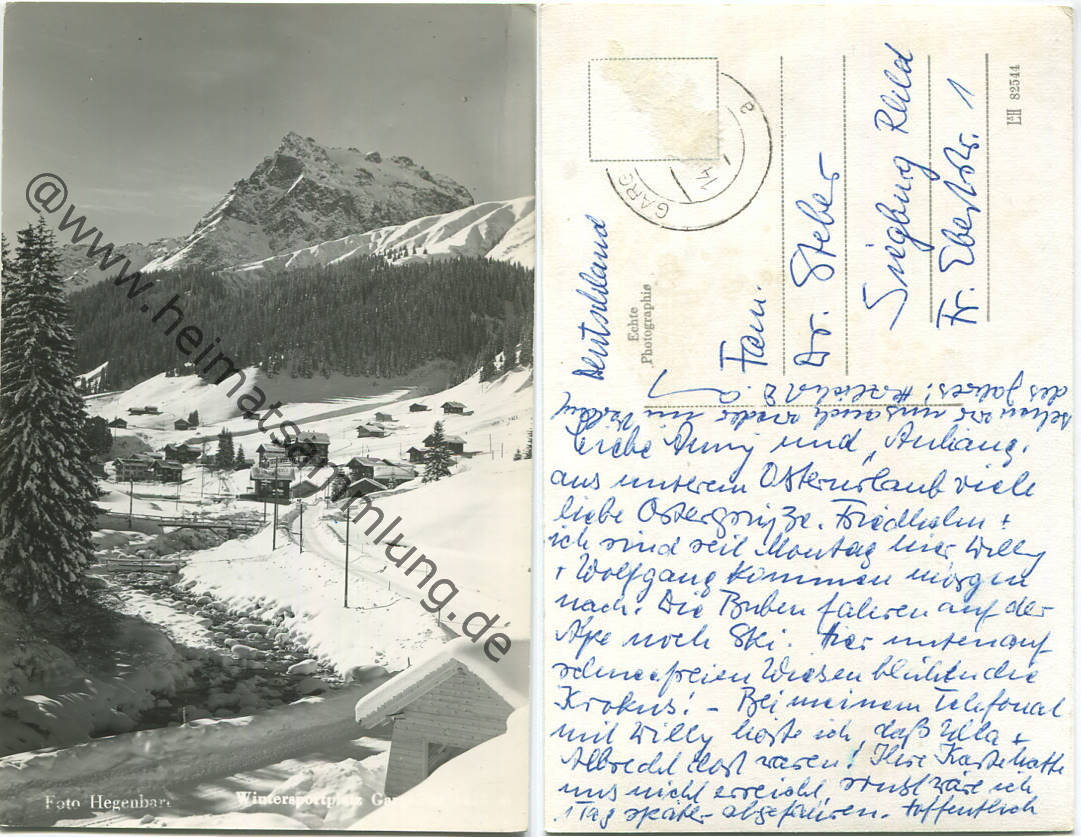 @www.heimatsammlung.de
Foto Hegenbart
Wintersportplatz Gar
GARG
14.
a
L&H 82544
Echte
Photographie
Deutschland
Fam.
Dr. Steber
Siegburg Rhld
Fr. Ebertstr. 1
Liebe Anny und „Anhang“,
aus unserem Osterurlaub viele
liebe Ostergrüße. Friedhelm +
ich sind seit Montag hier Willy
+ Wolfgang kommen morgen
nach. Die Buben fahren auf der
Alpe noch Ski. Hier unten auf
schneefreien Wiesen blühen die
Krokus! – Bei meinem Telefonat
mit Willy hörte ich, daß Ulla +
Albrecht dort waren! Ihre Karte hatte
uns nicht erreicht, sonst wäre ich
1 Tag später abgefahren. Hoffentlich
sehen wir uns auch wieder im
des Jahres!